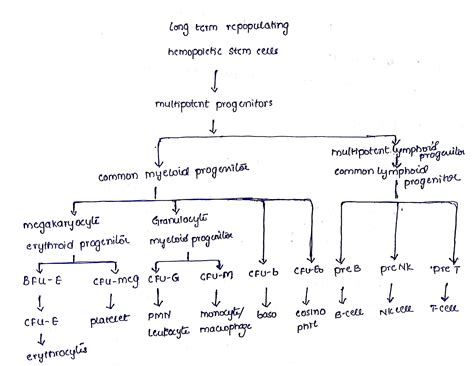 long term repopulating
hemopoietic stem cells
multipotent progenitors
multipotent lymphoid progenitor
common myeloid progenitor
common lymphoid progenitor
megakaryocyte
erythroid progenitor
Granulocyte
myeloid progenitor
BFU-E
CFU-meg
CFU-G
CFU-M
CFU-b
CFU-Eo
pre B
pre NK
pre T
CFU-E
platelet
PMN
leukocyte
monocyte/
macrophage
baso
eosino
phil
B-cell
NK cell
T-cell
erythrocytis